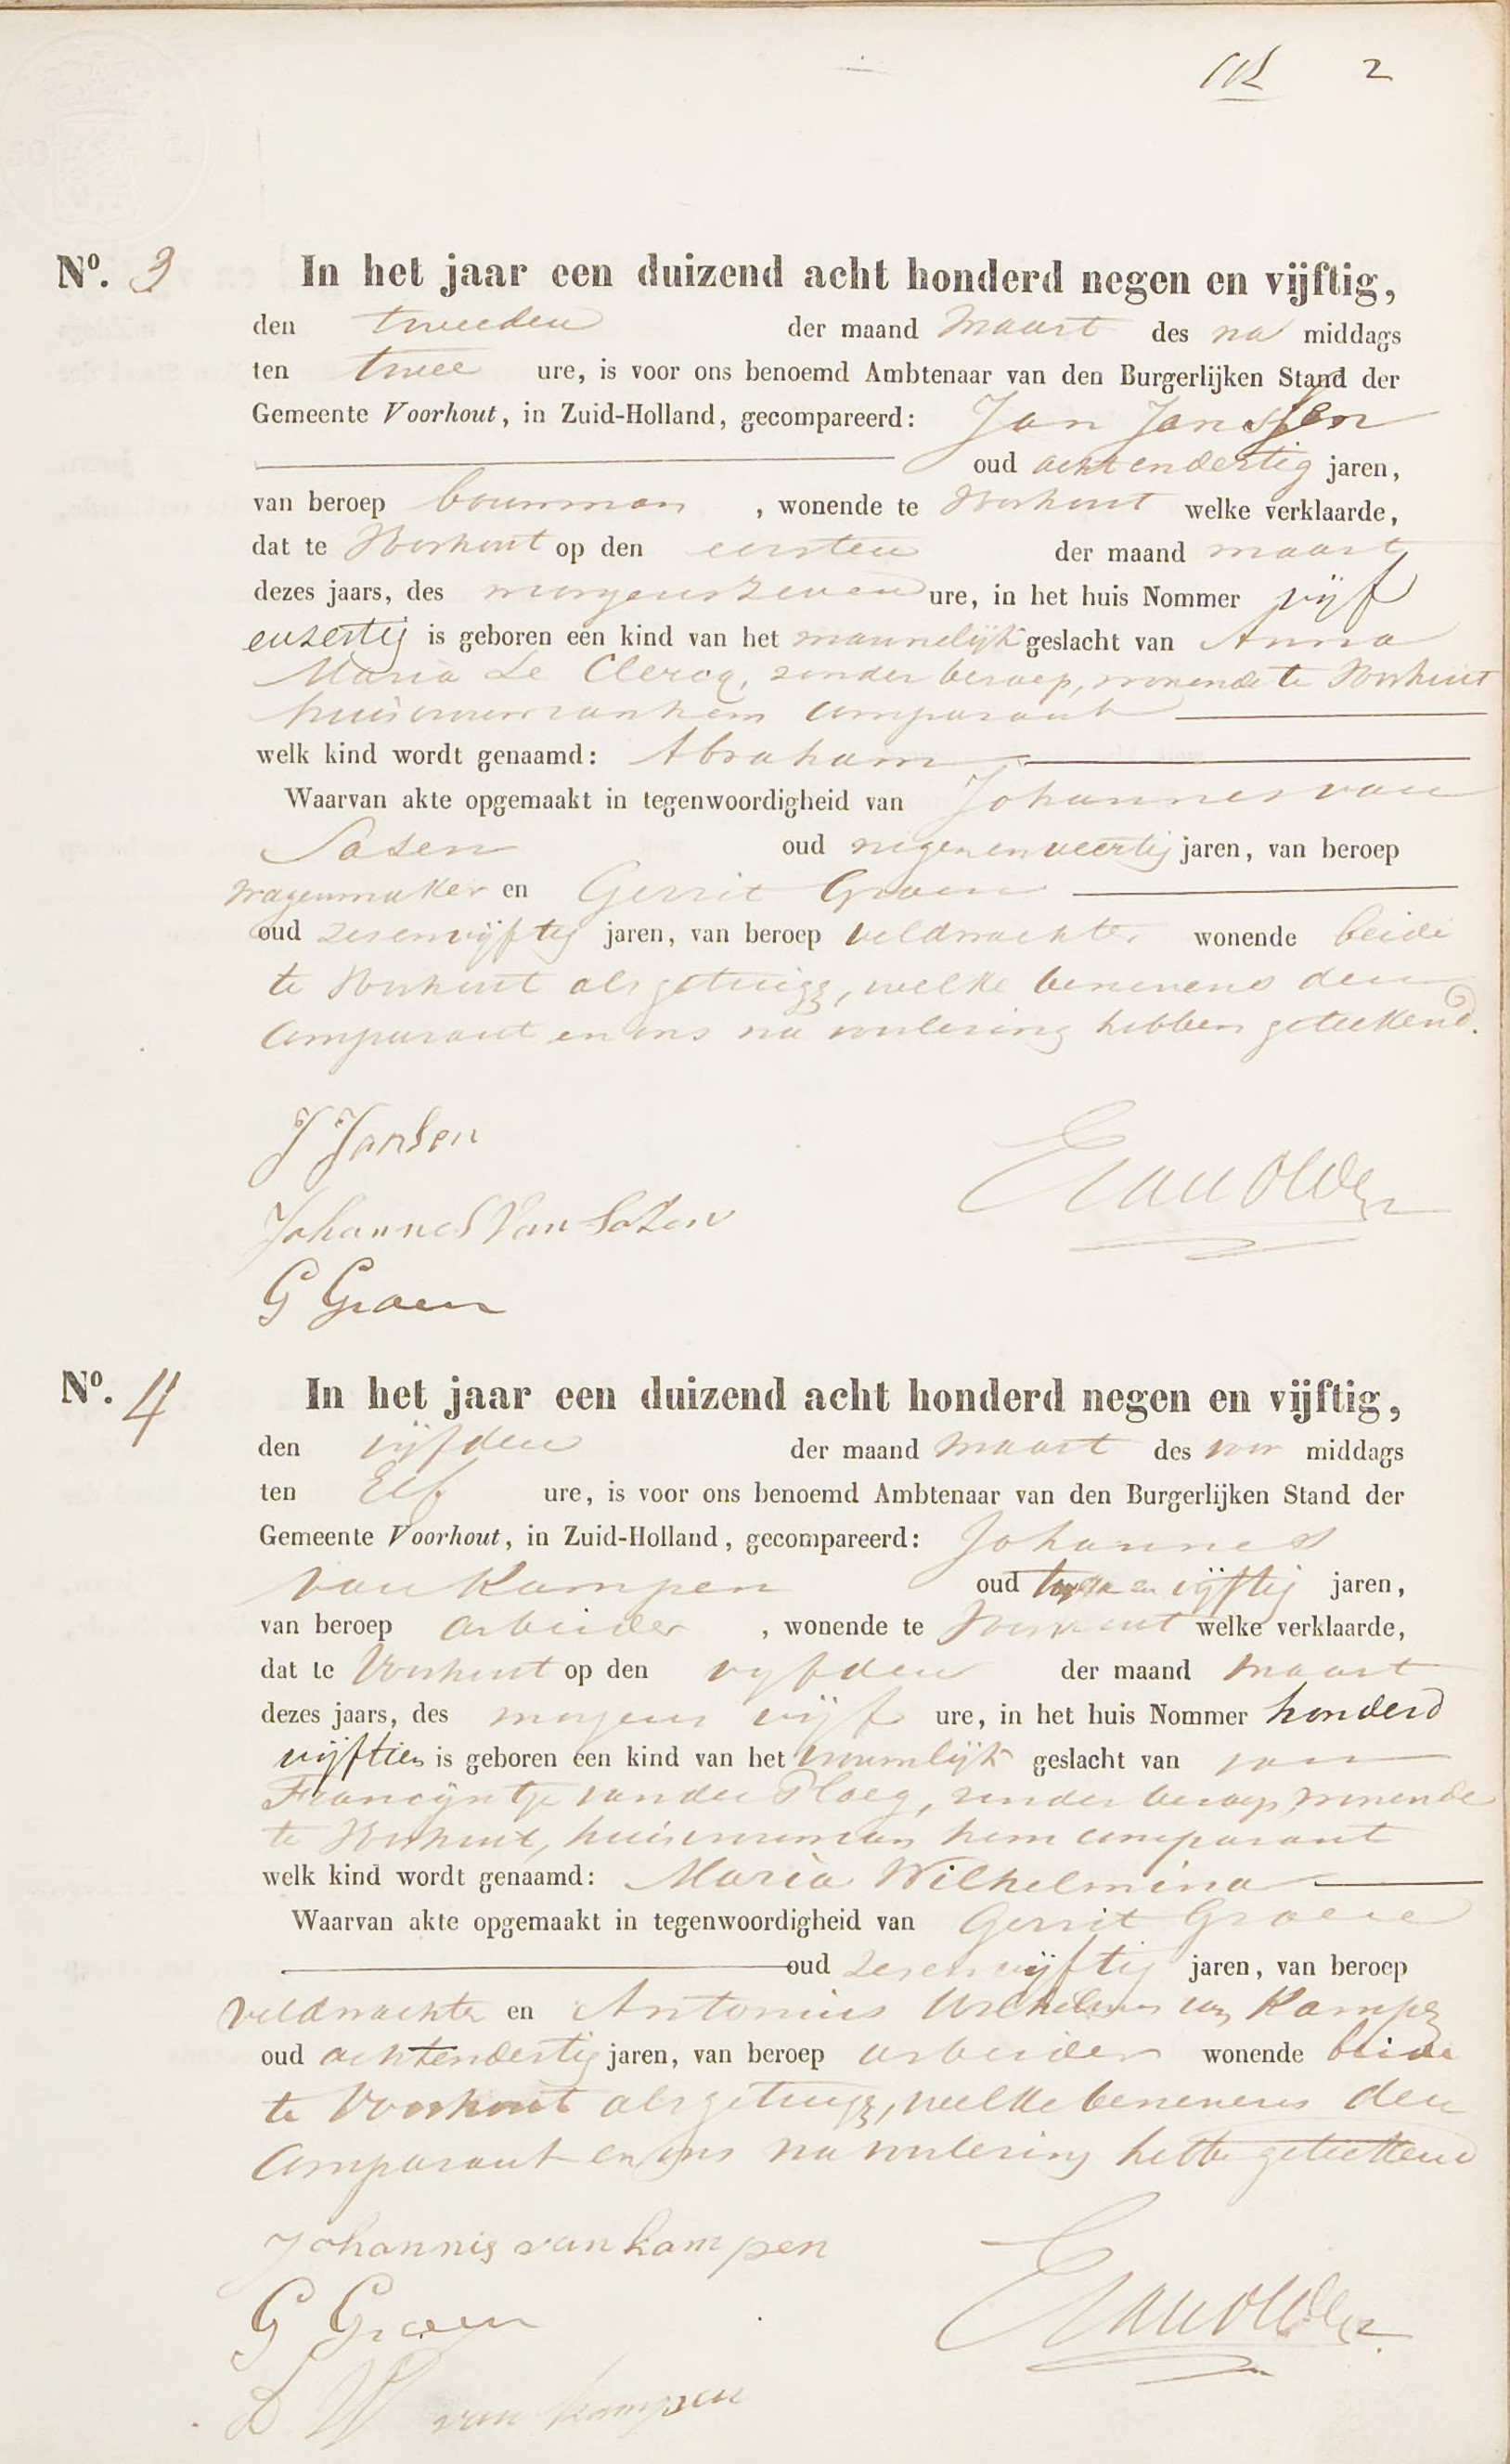 2
Nº. 3 In het jaar een duizend acht honderd negen en vijftig,
den tweeden der maand Maart des na middags
ten twee ure, is voor ons benoemd Ambtenaar van den Burgerlijken Stand der
Gemeente Voorhout, in Zuid-Holland, gecompareerd: Jan Janssen
oud achtendertig jaren,
van beroep bouwman, wonende te Voorhout welke verklaarde,
dat te Voorhout op den eersten der maand maart
dezes jaars, des morgens zeven ure, in het huis Nommer vijf
enzestig is geboren een kind van het mannelijk geslacht van Anna
Maria Le Clercq, zonder beroep, wonende te Voorhout
huisvrouw van hem Comparant
welk kind wordt genaamd: Abraham
Waarvan akte opgemaakt in tegenwoordigheid van Johannes van
Sasen oud negenenveertig jaren, van beroep
wagenmaker en Gerrit Groen
oud zesenvijftig jaren, van beroep veldwachter wonende beide
te Voorhout als getuigen, welke benevens den
Comparant en ons na voorlezing hebben geteekend.
J Jansen
Johannes Van Sasen
G Groen
Nº. 4 In het jaar een duizend acht honderd negen en vijftig,
den vijfden der maand Maart des voor middags
ten Elf ure, is voor ons benoemd Ambtenaar van den Burgerlijken Stand der
Gemeente Voorhout, in Zuid-Holland, gecompareerd: Johannes
van Kampen oud twee en vijftig jaren,
van beroep arbeider, wonende te Voorhout welke verklaarde,
dat te Voorhout op den vyfden der maand maart
dezes jaars, des morgens vijf ure, in het huis Nommer honderd
vijftien is geboren een kind van het vrouwelijk geslacht van van
Francijntje van der Ploeg, zonder beroep, wonende
te Voorhout, huisvrouw van hem comparant
welk kind wordt genaamd: Maria Wilhelmina
Waarvan akte opgemaakt in tegenwoordigheid van Gerrit Groen
oud zesenvijftig jaren, van beroep
veldwachter en Antonius Wilhelmus van Kampen
oud achtendertig jaren, van beroep arbeider wonende beide
te Voorhout als getuigen, welke benevens den
Comparant en ons na voorlezing hebben geteekend
Johannis van kampen
G Groen
W van kampen